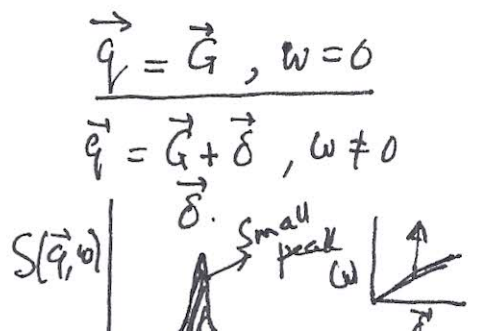 q⃗ = G⃗ , ω = 0
q⃗ = G⃗ + δ⃗ , ω ≠ 0
δ⃗.
S(q⃗, ω)
small
peak
ω
δ⃗